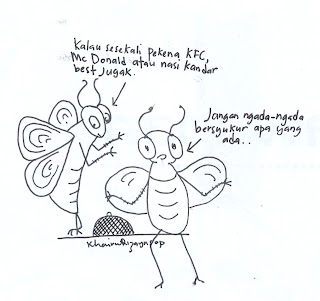 Kalau sesekali pekena KFC,
Mc Donald atau nasi kandar
best jugak.
Jangan ngada-ngada
bersyukur apa yang
ada..